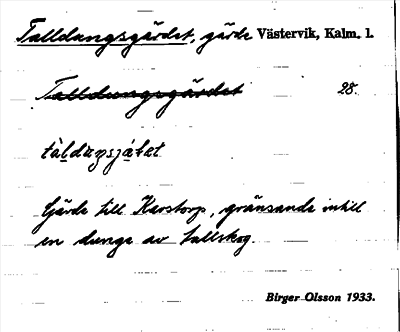 Talldungsgärdet, gärde Västervik, Kalm. l.
Talldungsgärdet 28.
tàlduŋsjátet
Gärde till Karstorp, gränsande intill
en dunge av tallskog.
Birger Olsson 1933.